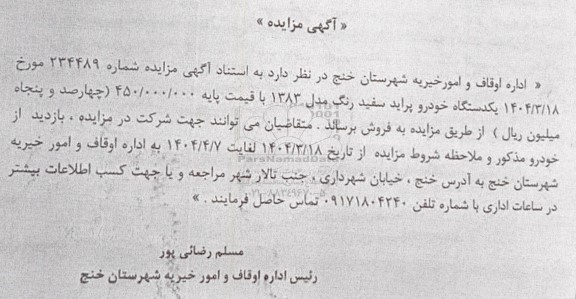 « آگهی مزایده »
« اداره اوقاف و امورخیریه شهرستان خنج در نظر دارد به استناد آگهی مزایده شماره ۲۳۴۴۸۹ مورخ
۱۴۰۴/۳/۱۸ یکدستگاه خودرو پراید سفید رنگ مدل ۱۳۸۳ با قیمت پایه ۴۵۰/۰۰۰/۰۰۰ (چهارصد و پنجاه
میلیون ریال ) از طریق مزایده به فروش برساند . متقاضیان می توانند جهت شرکت در مزایده ، بازدید از
خودرو مذکور و ملاحظه شروط مزایده از تاریخ ۱۴۰۴/۳/۱۸ لغایت ۱۴۰۴/۴/۷ به اداره اوقاف و امور خیریه
ParsNamadData
شهرستان خنج به آدرس خنج ، خیابان شهرداری ، جنب تالار شهر مراجعه و یا جهت کسب اطلاعات بیشتر
در ساعات اداری با شماره تلفن ۰۹۱۷۱۸۰۴۲۴۰ تماس حاصل فرمایند . »
مسلم رضائی پور
رئیس اداره اوقاف و امور خیریه شهرستان خنج